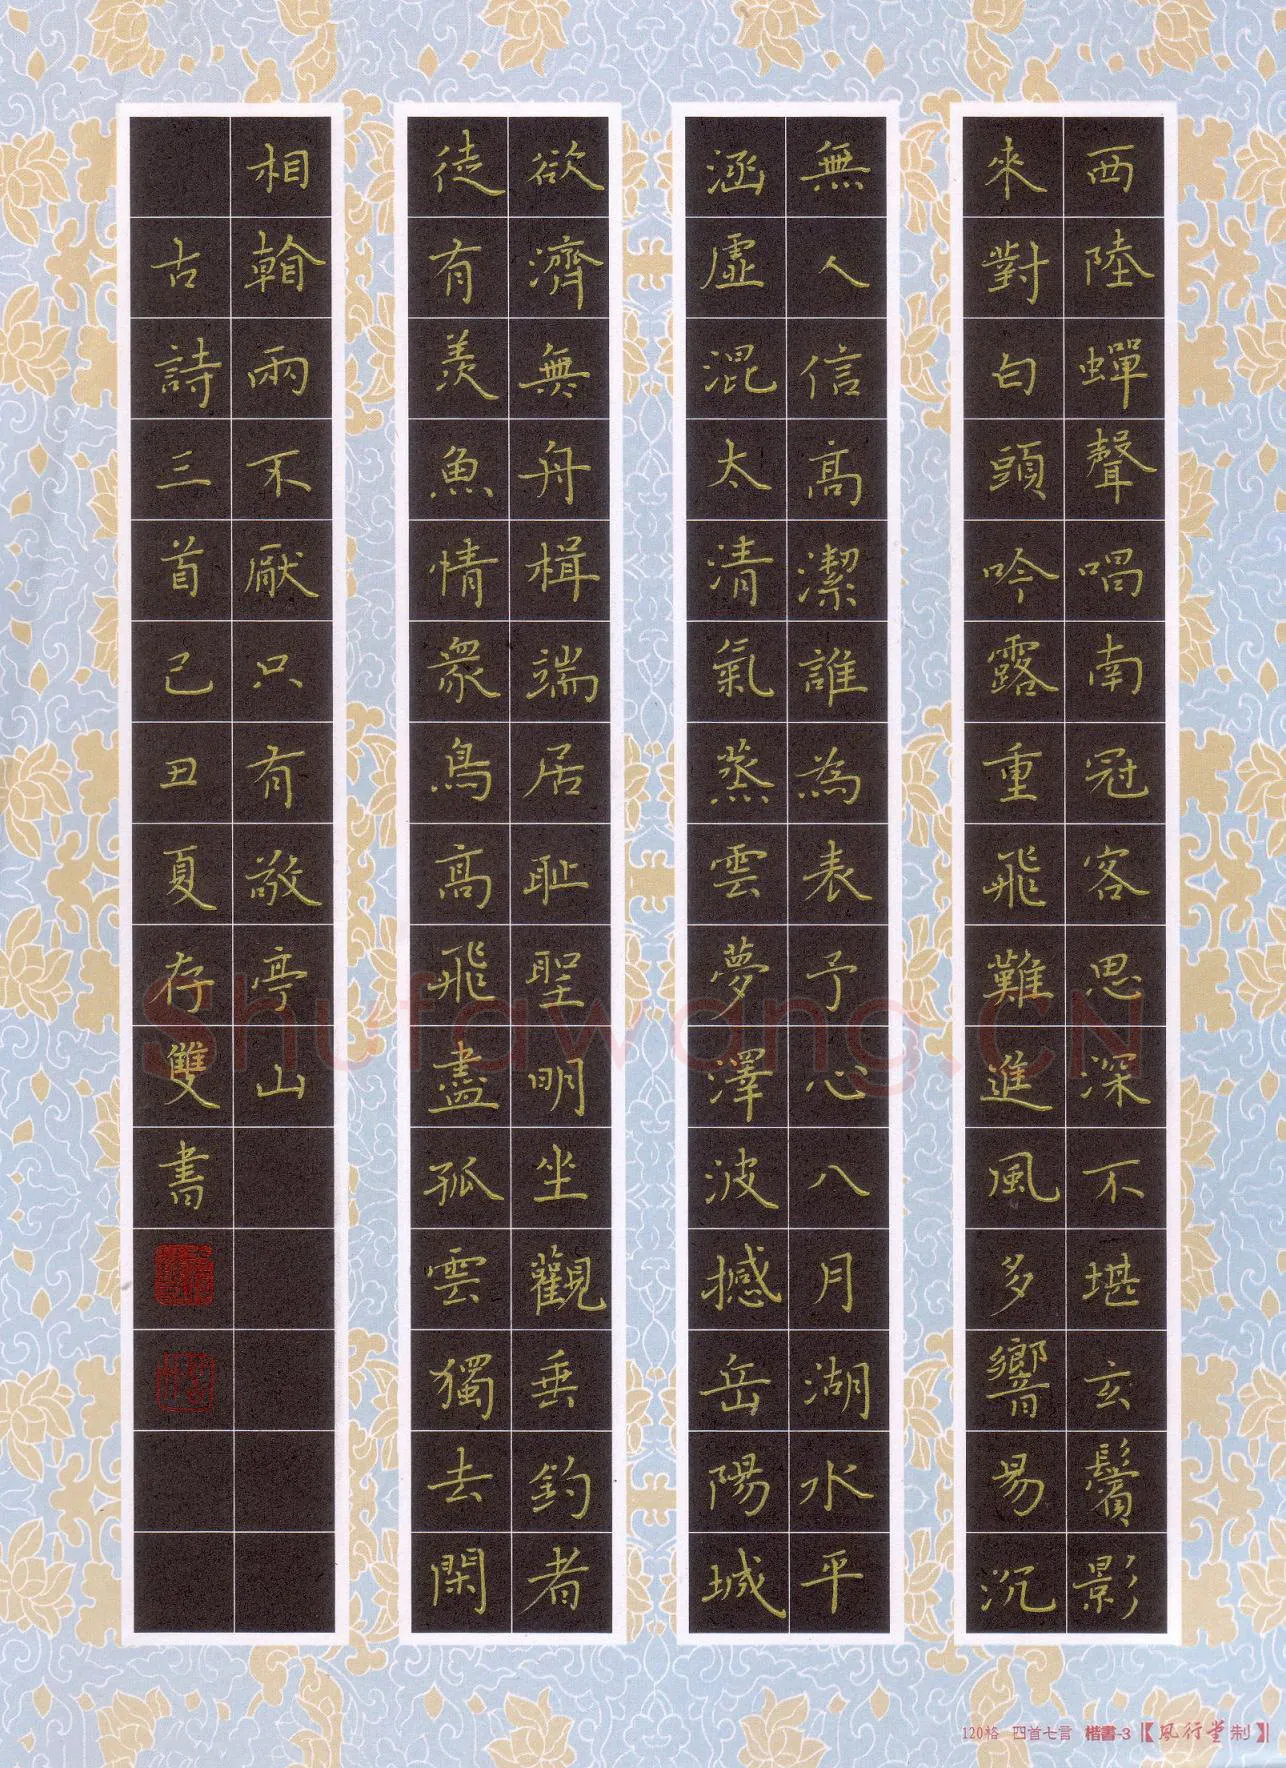 西陸蟬聲唱南冠客思深不堪玄鬢影
來對白頭吟露重飛難進風多響易沉
無人信高潔誰為表予心八月湖水平
涵虛混太清氣蒸雲夢澤波撼岳陽城
欲濟無舟楫端居耻聖明坐觀垂釣者
徒有羨魚情衆鳥高飛盡孤雲獨去閑
相看兩不厭只有敬亭山
古詩三首己丑夏存雙書
120格 四首七言 楷書-3【風行堂制】
Shufawang.CN